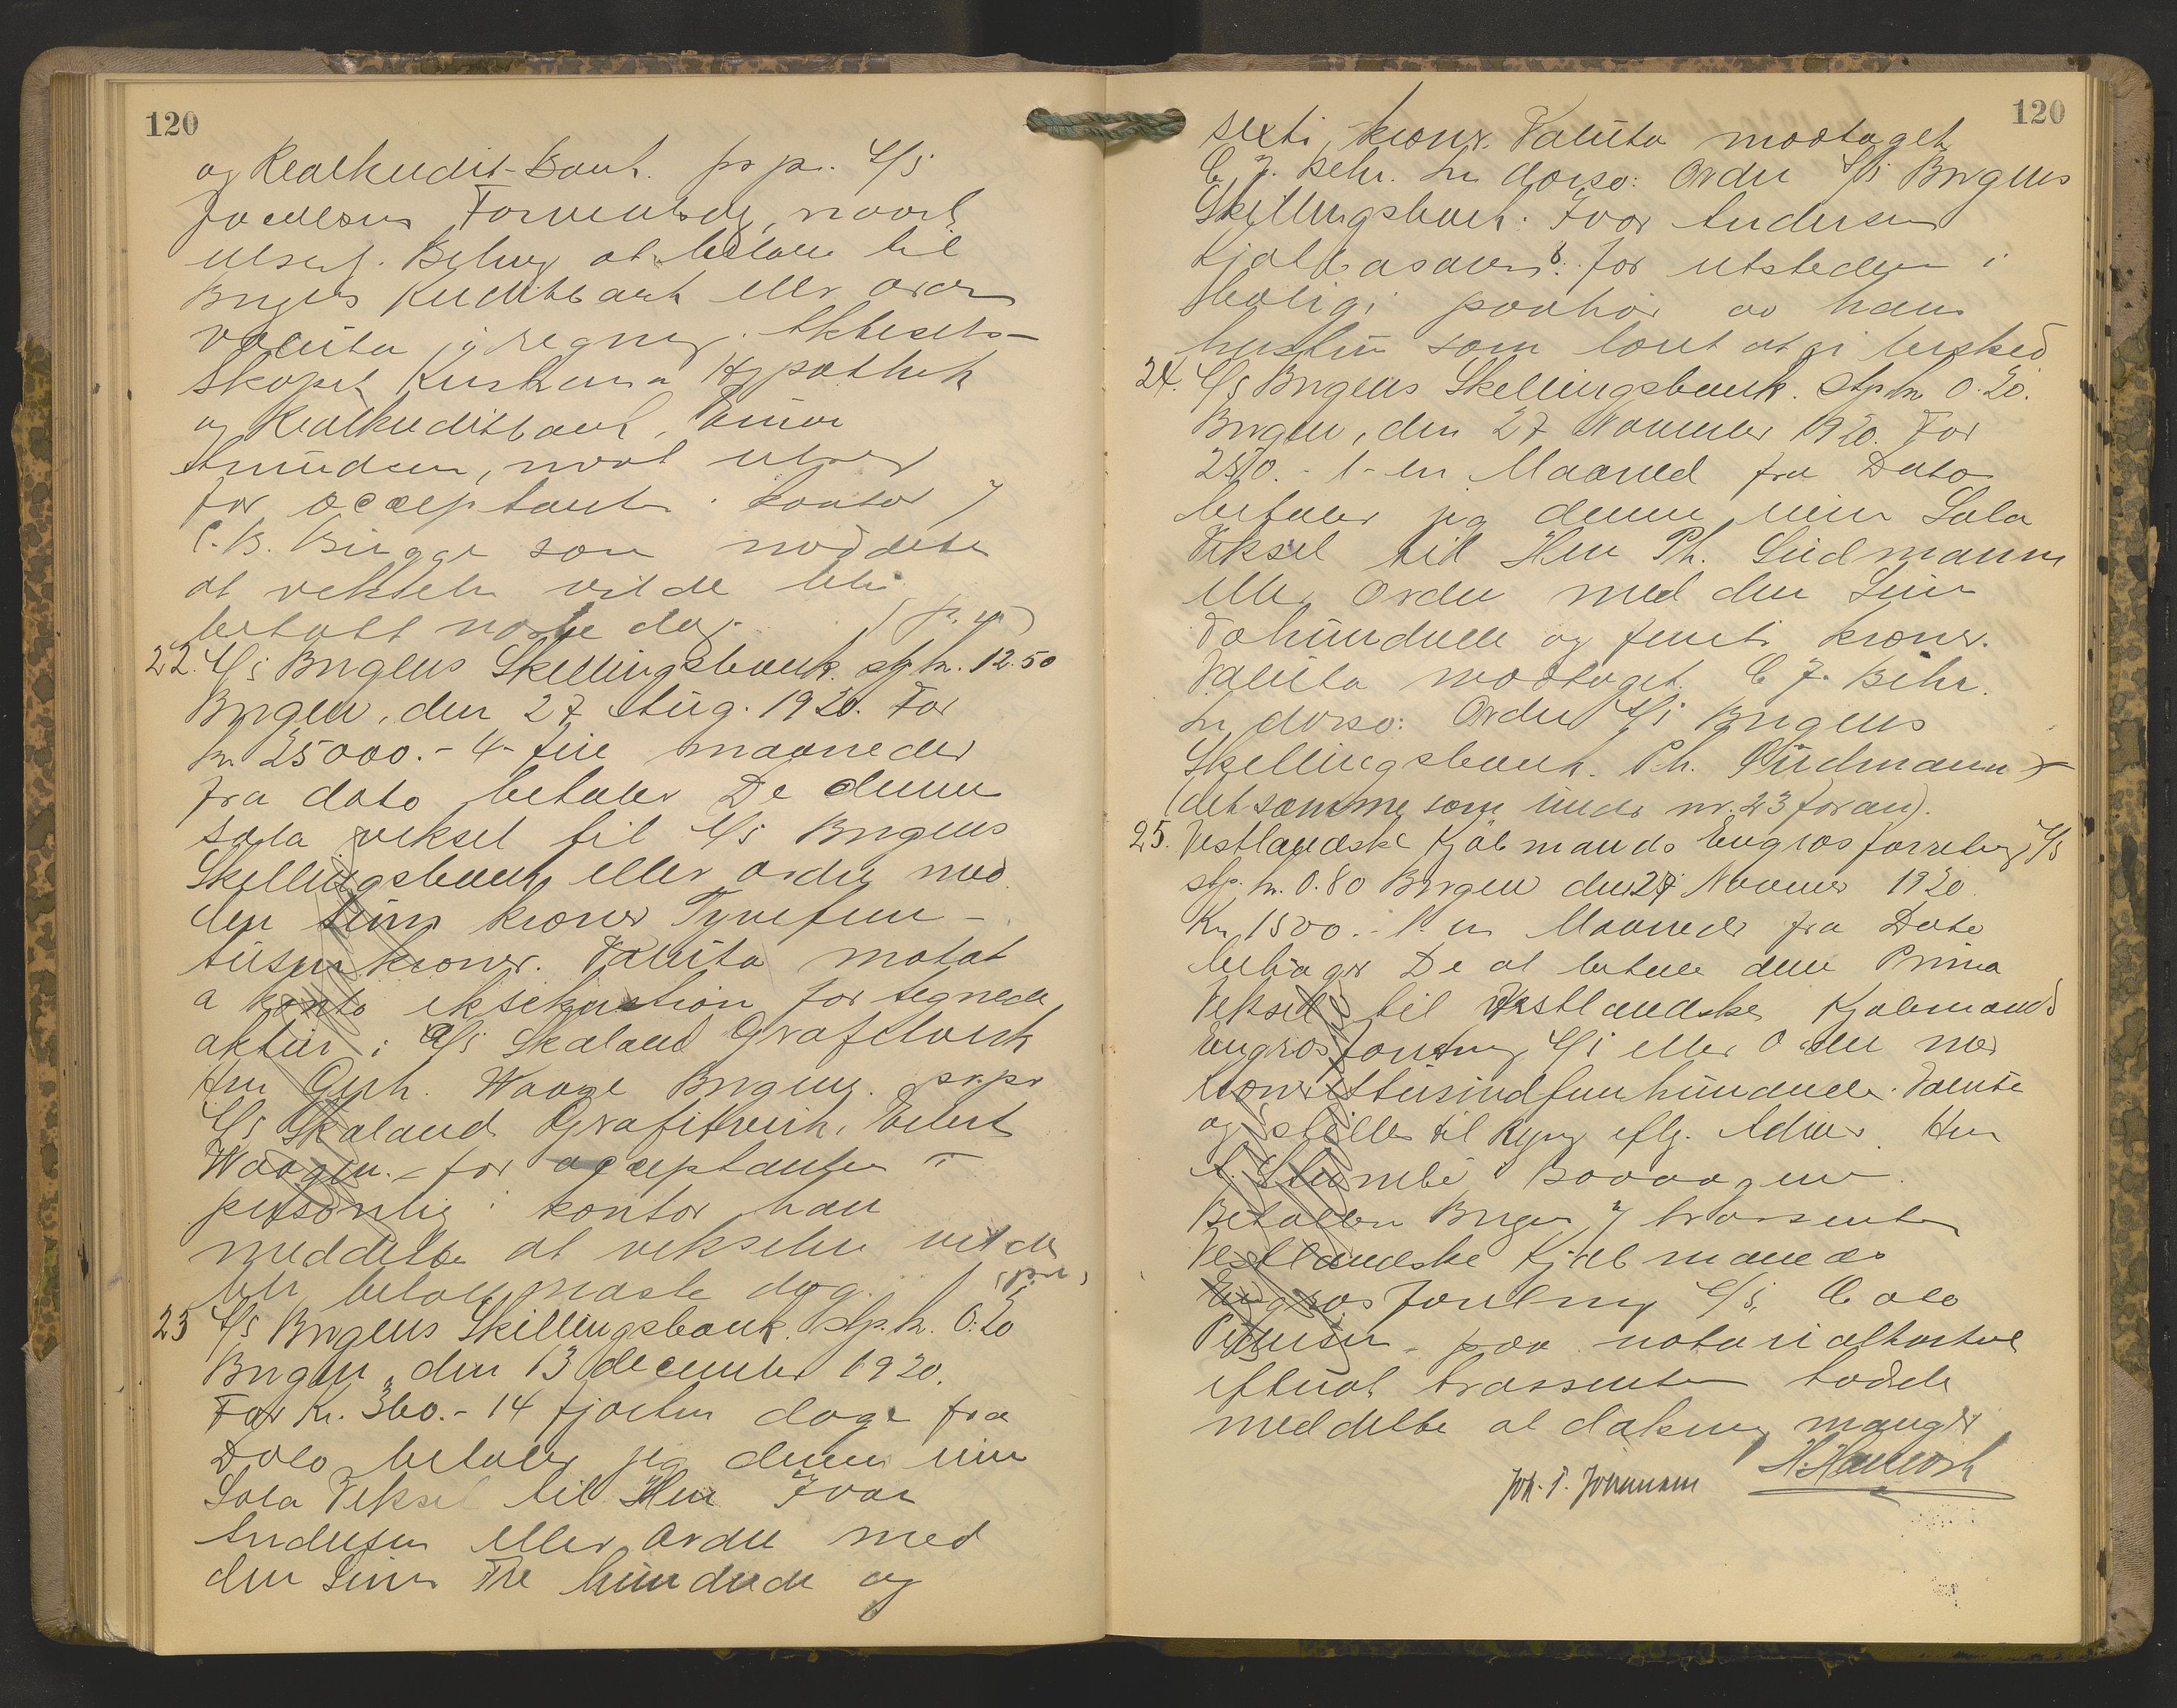 120
og Realkredit-Bank. pr pr. A/S
Jacobsens Forretning, noost
ulæsel. Behag at betale til
Bergens Kreditbank eller ordre
valuta i regning. Aktiesel-
skapet Kristiania Hypothek
og Realkreditbank, Einar
Amundsen, noost ulæs
for acceptanten i kontor
C. B. Bugge som meddelte
at vekselen vilde bli
betalt næste dag. (p. n.)
22. A/S Bergens Skillingsbank. stp. kr. 12.50
Bergen, den 27 Aug. 1920. For
kr. 25000.- 4- fire maaneder
fra dato betaler De denne
sola veksel til A/S Bergens
Skillingsbank eller ordre med
den sum kroner Tyvefem-
tusen kroner. Valuta motat
a konto for tegnede
aktier i A/S Skaland Grafitverk
Herr Gerh. Waage Bergen. pr. pr
A/S Skaland Grafitverk, Eilert
Waagen. - for acceptanten
personlig i kontor han
meddelte at vekselen vilde
bli betalt næste dag. (p. n.)
23 A/S Bergens Skillingsbank. Stp. kr. 0.20
Bergen, den 13 december 1920.
For Kr. 360.- 14 fjorten dage fra
Dato betaler jeg denne min
Sola Veksel til Herr Ivar
Andersen eller Ordre med
den Sum Tre hundrede og
120
sexti kroner. Valuta modtaget
C. J. Behr. In dorso: Ordre A/S Bergens
Skillingsbank. Ivar Andersen
for utstederen i
bolig i paahør av hans
hustru som lovet at gi besked
24. A/S Bergens Skillingsbank. Stp. kr 0.20.
Bergen, den 27 November 1920. For
250.- 1- en Maaned fra Dato
betaler jeg denne min Sola
Veksel til Herr Ph. Lüdmann
eller Ordre med den Sum
Tohundrede og femti kroner.
Valuta modtaget. C. J. Behr.
In dorso: Ordre A/S Bergens
Skillingsbank. Ph. Lüdmann
(det samme som under nr. 23 foran).
25. Vestlandske Kjøbmands Engrosforretning A/S
stp. kr. 0.80 Bergen den 27 November 1920
Kr. 1500.- 1 en Maaned fra Dato
behager De at betale denne Prima
Veksel til Vestlandske Kjøbmands
Engrosforretning A/S eller Ordre med
Kroner Ettusindfemhundrede. Valuta
og stilles til Regning iflg. Advis. Herr
Baavaagen.
Betales i Bergen trassenten
Vestlandske Kjøbmands
Engrosforretning A/S,
Petersen - paa notarialkontoret
efterat trassenten
meddelte at dækning mangler
H. Hauloch
Joh. T. Johannesen